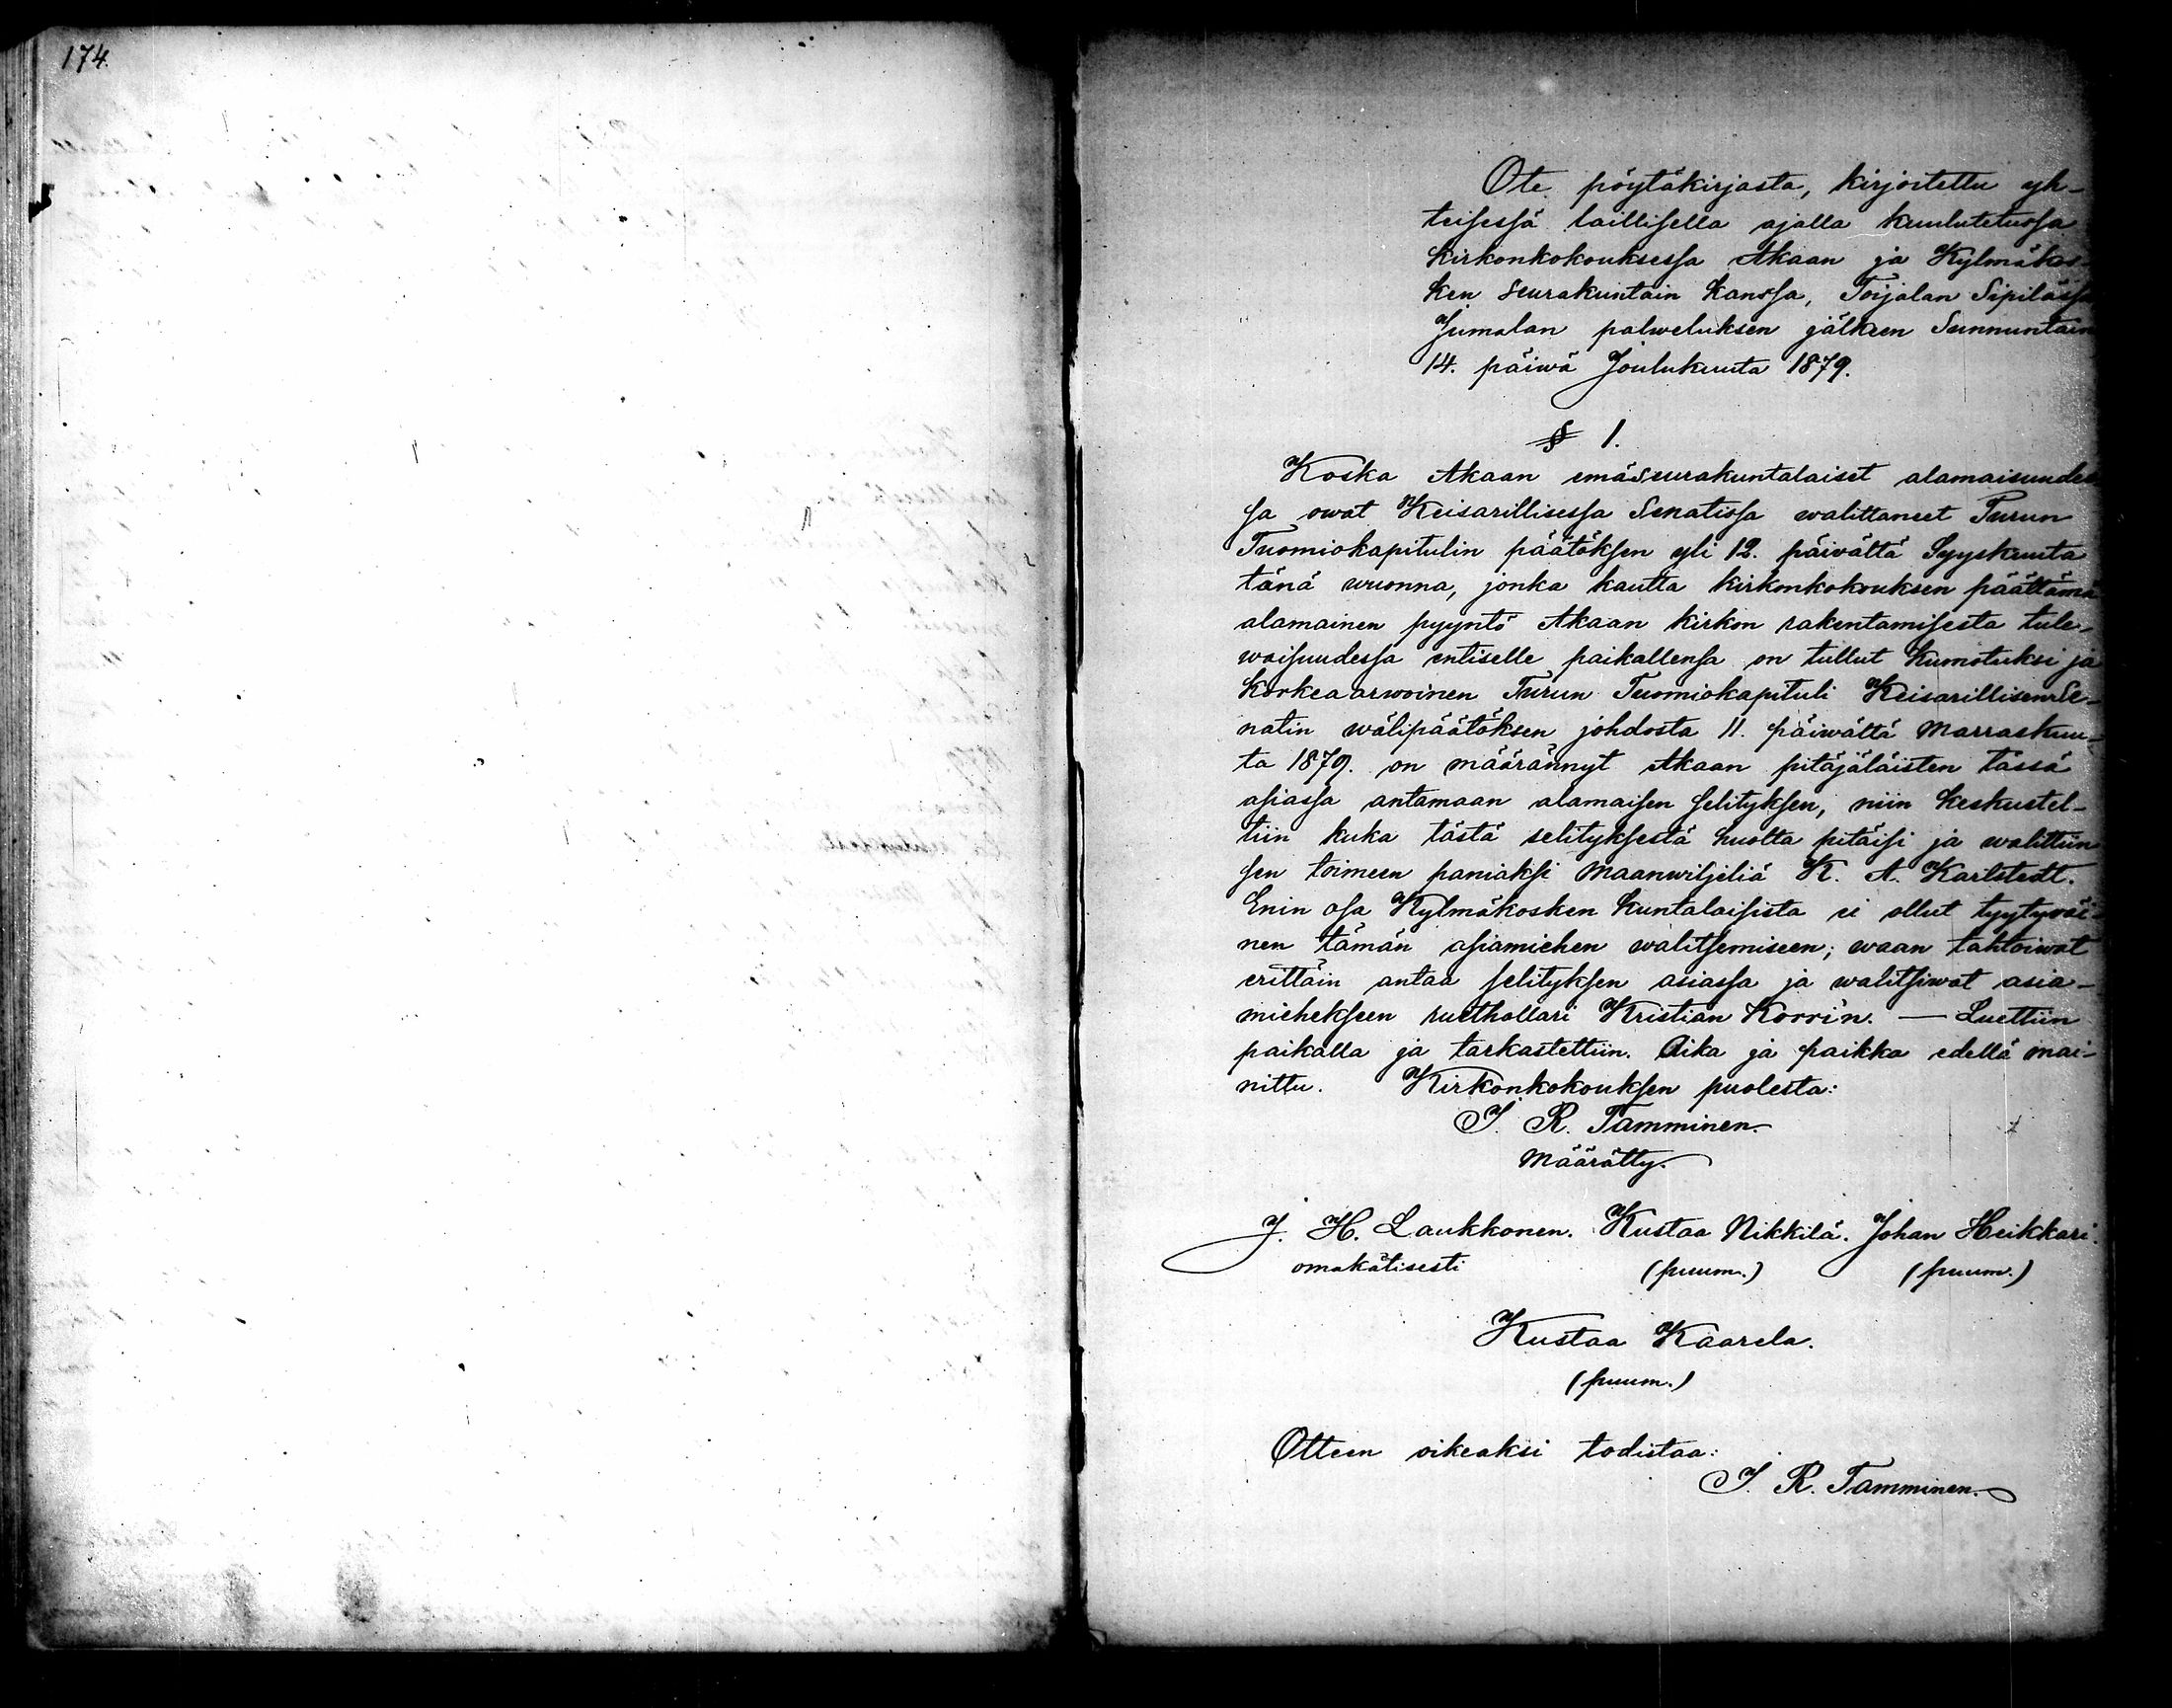 174.
Ote pöytäkirjasta, kirjoitettu yh-
teisessä laillisella ajalla kuulutetussa
kirkonkokouksessa Akaan ja Kylmäkos-
ken seurakuntain kanssa, Toijalan Sipilässä
Jumalan palweluksen jälkeen Sunnuntain
14. päiwä Joulukuuta 1879.
§ 1.
Koska Akaan emäseurakuntalaiset alamaisuudes
sa owat Keisarillisessa Senatissa walittaneet Turun
Tuomiokapitulin päätöksen yli 12. päivältä Syyskuuta
tänä wuonna, jonka kautta kirkonkokouksen päättämä
alamainen pyyntö Akaan kirkon rakentamisesta tule-
waisuudessa entiselle paikallensa on tullut kumotuksi ja
korkeaarwoinen Turun Tuomiokapituli Keisarillisen Se-
natin wälipäätöksen johdosta 11. päiwältä Marraskuu-
ta 1879. on määrännyt Akaan pitäjäläisten tässä
asiassa antamaan alamaisen selityksen, niin keskustel-
tiin kuka tästä selityksestä huolta pitäisi ja walittiin
sen toimeen paniaksi Maanwiljeliä K. A. Karlstedt.
Enin osa Kylmäkosken kuntalaisista ei ollut tyytywäi-
nen tämän asiamiehen walitsemiseen; waan tahtoiwat
erittäin antaa selityksen asiassa ja walitsiwat asia-
miehekseen rusthollari Kristian Korrin. — Luettiin
paikalla ja tarkastettiin. Aika ja paikka edellä mai-
nittu. Kirkonkokouksen puolesta:
J. R. Tamminen.
Määrätty.
J. H. Laukkonen. Kustaa Nikkilä. Johan Heikkari.
omakätisesti (puum.) (puum.)
Kustaa Kaarela.
(puum.)
Otteen oikeaksi todistaa:
J. R. Tamminen.